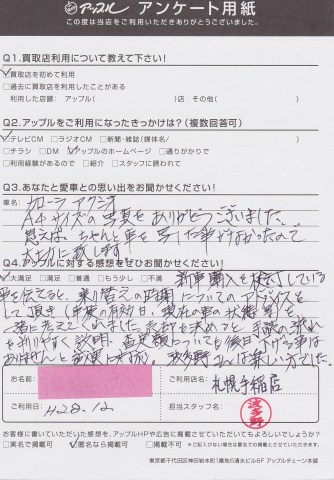 アップル アンケート用紙
この度は当店をご利用いただきありがとうございました。
Q1.買取店利用について教えて下さい!
買取店を初めて利用
□過去に買取店を利用したことがある
利用した店舗: アップル( )店 その他( )
Q2.アップルをご利用になったきっかけは?(複数回答可)
テレビCM □ラジオCM □新聞・雑誌(媒体名/ )
□チラシ □DM アップルのホームページ □通りがかりで
□利用経験があるので □紹介 □スタッフに誘われて
Q3.あなたと愛車との思い出をお聞かせください!
車名: カローラ アクシオ
A4サイズの写真をありがとうございました。
思えば、ちゃんと車を写した事がなかったので
大切に致します
Q4.アップルに対する感想をぜひお聞かせください!
大満足 □満足 □普通 □もう少し □不満 新車購入を検討している
と伝えると、乗り替えの時期についてのアドバイスを
して頂き
一緒に考えてくれました。売却を決めると、手続の流れ
を判りやすく説明、査定額についても後日、下がる事は
ありませんと
お名前:
ご利用店名: 札幌手稲店
ご利用日: H28.12
担当スタッフ名: 波多野
お客様に書いていただいた感想を、アップルHPや広告に掲載させていただいてもよろしいでしょうか?
□実名で掲載可 匿名なら掲載可 □掲載不可
東京都千代田区神田岩本町1番地5清水ビル6F アップルチェーン本部